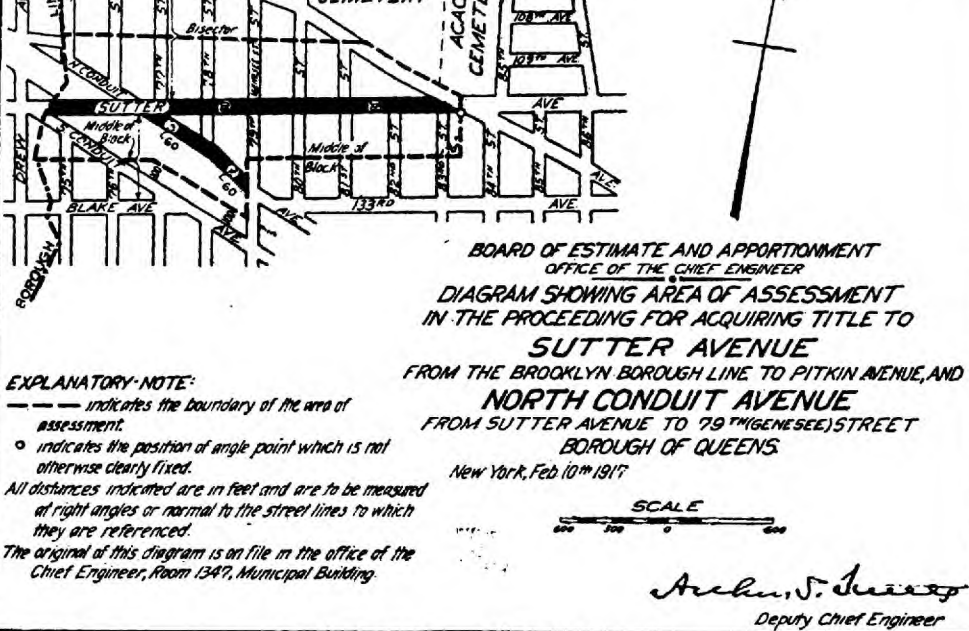 CEMETERY
ACAC
CEMETE
108TH AVE
109TH AVE
Bisector
N. CONDUIT
77TH
78TH
SUTTER
AVE
Middle of
Block
S. CONDUIT
60
60
79TH
Middle of
Block
80TH
81ST
82ND
83RD
84TH
85TH
86TH
DREW
75TH
76TH
BLAKE AVE
AVE
133RD
AVE.
AVE.
BOROUGH
BOARD OF ESTIMATE AND APPORTIONMENT
OFFICE OF THE CHIEF ENGINEER
DIAGRAM SHOWING AREA OF ASSESSMENT
IN THE PROCEEDING FOR ACQUIRING TITLE TO
SUTTER AVENUE
FROM THE BROOKLYN BOROUGH LINE TO PITKIN AVENUE, AND
NORTH CONDUIT AVENUE
FROM SUTTER AVENUE TO 79TH (GENESEE) STREET
BOROUGH OF QUEENS.
New York, Feb. 10th 1917
SCALE
600 300 0 600
EXPLANATORY-NOTE:
indicates the boundary of the area of
assessment.
indicates the position of angle point which is not
otherwise clearly fixed.
All distances indicated are in feet and are to be measured
at right angles or normal to the street lines to which
they are referenced.
The original of this diagram is on file in the office of the
Chief Engineer, Room 1347, Municipal Building.
Deputy Chief Engineer